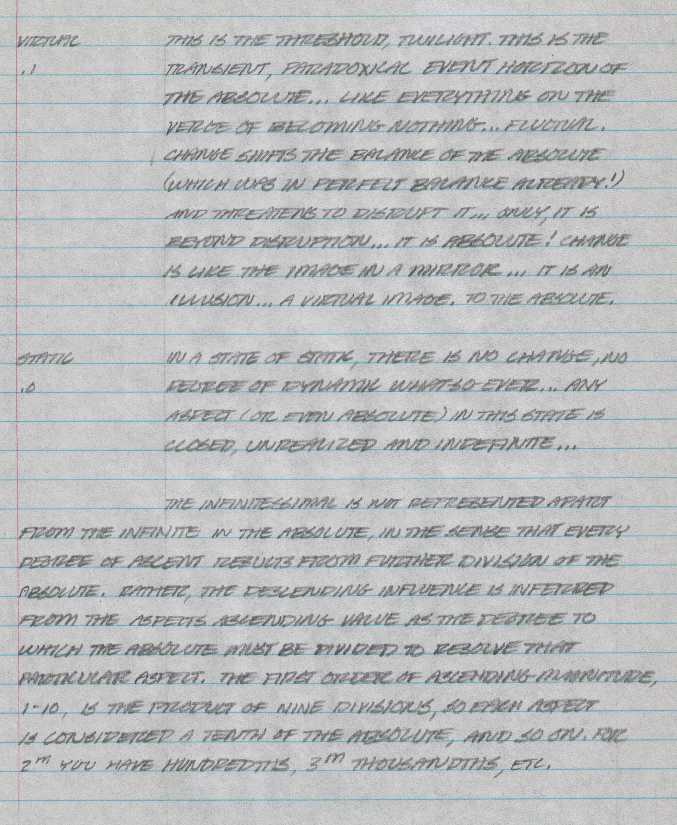 VIRTUAL THIS IS THE THRESHOLD, TWILIGHT. THIS IS THE
.1 TRANSIENT, PARADOXICAL EVENT HORIZON OF
THE ABSOLUTE... LIKE EVERYTHING ON THE
VERGE OF BECOMING NOTHING... FLUCTUAL.
CHANGE SHIFTS THE BALANCE OF THE ABSOLUTE
(WHICH WAS IN PERFECT BALANCE ALREADY!)
AND THREATENS TO DISRUPT IT... ONLY, IT IS
BEYOND DISRUPTION... IT IS ABSOLUTE! CHANGE
IS LIKE THE IMAGE IN A MIRROR... IT IS AN
ILLUSION... A VIRTUAL IMAGE. TO THE ABSOLUTE.
STATIC IN A STATE OF STATIC, THERE IS NO CHANGE, NO
.0 DEGREE OF DYNAMIC WHAT SO EVER... ANY
ASPECT (OR EVEN ABSOLUTE) IN THIS STATE IS
CLOSED, UNREALIZED AND INDEFINITE...
THE INFINITESSIMAL IS NOT REPRESENTED APART
FROM THE INFINITE IN THE ABSOLUTE, IN THE SENSE THAT EVERY
DEGREE OF ASCENT RESULTS FROM FURTHER DIVISION OF THE
ABSOLUTE. RATHER, THE DESCENDING INFLUENCE IS INFERRED
FROM THE ASPECTS ASCENDING VALUE AS THE DEGREE TO
WHICH THE ABSOLUTE MUST BE DIVIDED TO RESOLVE THAT
PARTICULAR ASPECT. THE FIRST ORDER OF ASCENDING MAGNITUDE,
1-10, IS THE PRODUCT OF NINE DIVISIONS, SO EACH ASPECT
IS CONSIDERED A TENTH OF THE ABSOLUTE, AND SO ON. FOR
2m YOU HAVE HUNDREDTHS, 3m THOUSANDTHS, ETC.